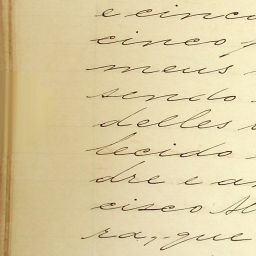 e cinco
cinco
meus
sendo
delles
lecido
dre e a
cisco
ra, que